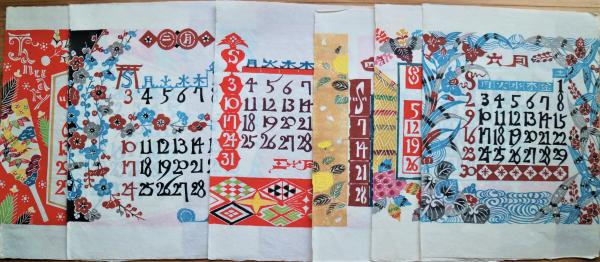 二月
S 月 火 水 木
3 4 5 6 7
10 11 12 13 14
17 18 19 20 21
24 25 26 27 28
S 月 火 水 木
3 4 5 6 7
10 11 12 13 14
17 18 19 20 21
24 25 26 27 28
31
三月
S
7
14
21
28
S
5
12
19
26
六月
S 月 火 水 木 金 1
2 3 4 5 6 7 8
9 10 11 12 13 14 15
16 17 18 19 20 21 22
23 24 25 26 27 28 29
30